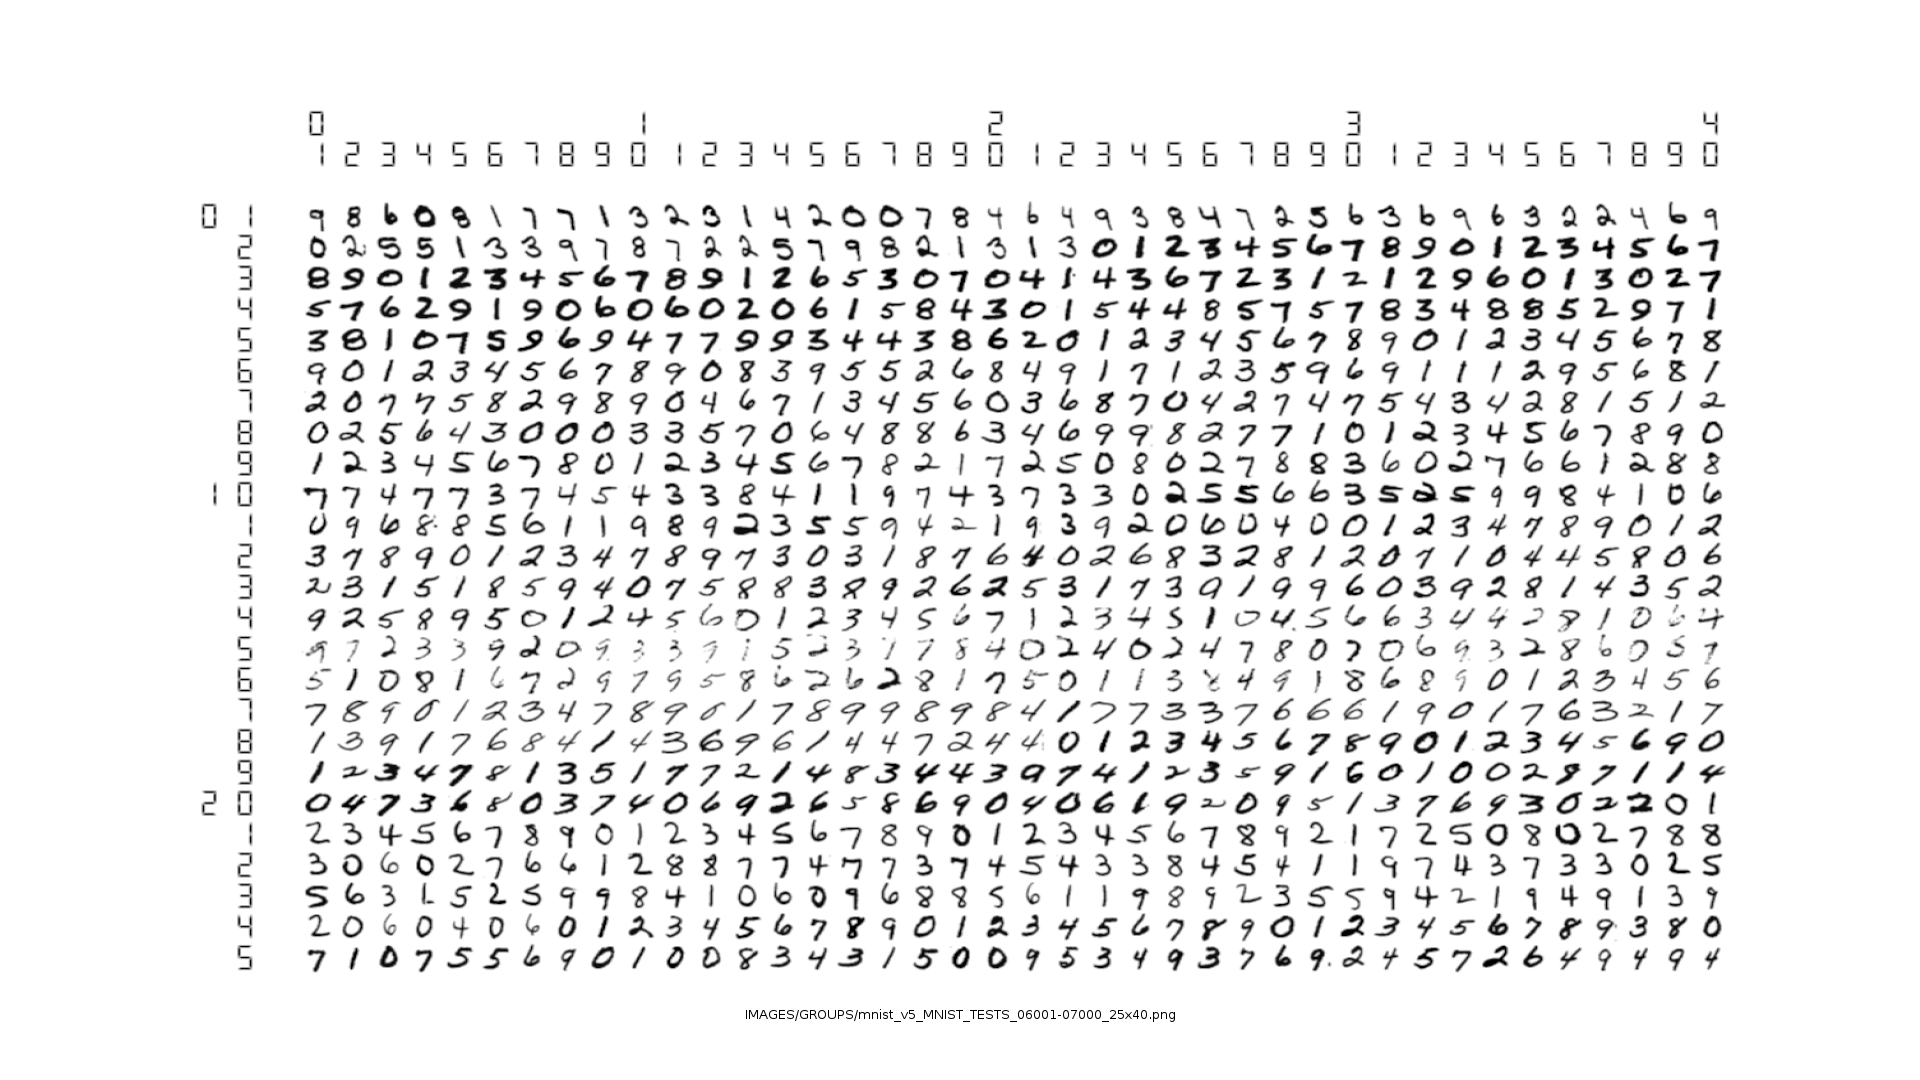 0 1 2 3 4
1 2 3 4 5 6 7 8 9 0 1 2 3 4 5 6 7 8 9 0 1 2 3 4 5 6 7 8 9 0 1 2 3 4 5 6 7 8 9 0
0 1 9 8 6 0 8 1 7 7 1 3 2 3 1 4 2 0 0 7 8 4 6 4 9 3 8 4 7 2 5 6 3 6 9 6 3 2 2 4 6 9
2 0 2 5 5 1 3 3 9 7 8 7 2 2 5 7 9 8 2 1 3 1 3 0 1 2 3 4 5 6 7 8 9 0 1 2 3 4 5 6 7
3 8 9 0 1 2 3 4 5 6 7 8 9 1 2 6 5 3 0 7 0 4 1 4 3 6 7 2 3 1 2 1 2 9 6 0 1 3 0 2 7
4 5 7 6 2 9 1 9 0 6 0 6 0 2 0 6 1 5 8 4 3 0 1 5 4 4 8 5 7 5 7 8 3 4 8 8 5 2 9 7 1
5 3 8 1 0 7 5 9 6 9 4 7 7 9 9 3 4 4 3 8 6 2 0 1 2 3 4 5 6 7 8 9 0 1 2 3 4 5 6 7 8
6 9 0 1 2 3 4 5 6 7 8 9 0 8 3 9 5 5 2 6 8 4 9 1 7 1 2 3 5 9 6 9 1 1 1 2 9 5 6 8 1
7 2 0 7 7 5 8 2 9 8 9 0 4 6 7 1 3 4 5 6 0 3 6 8 7 0 4 2 7 4 7 5 4 3 4 2 8 1 5 1 2
8 0 2 5 6 4 3 0 0 0 3 3 5 7 0 6 4 8 8 6 3 4 6 9 9 8 2 7 7 1 0 1 2 3 4 5 6 7 8 9 0
9 1 2 3 4 5 6 7 8 0 1 2 3 4 5 6 7 8 2 1 7 2 5 0 8 0 2 7 8 8 3 6 0 2 7 6 6 1 2 8 8
1 0 7 7 4 7 7 3 7 4 5 4 3 3 8 4 1 1 9 7 4 3 7 3 3 0 2 5 5 6 6 3 5 2 5 9 9 8 4 1 0 6
1 0 9 6 8 8 5 6 1 1 9 8 9 2 3 5 5 9 4 2 1 9 3 9 2 0 6 0 4 0 0 1 2 3 4 7 8 9 0 1 2
2 3 7 8 9 0 1 2 3 4 7 8 9 7 3 0 3 1 8 7 6 4 0 2 6 8 3 2 8 1 2 0 7 1 0 4 4 5 8 0 6
3 2 3 1 5 1 8 5 9 4 0 7 5 8 8 3 8 9 2 6 2 5 3 1 7 3 9 1 9 9 6 0 3 9 2 8 1 4 3 5 2
4 9 2 5 8 9 5 0 1 2 4 5 6 0 1 2 3 4 5 6 7 1 2 3 4 5 1 0 4 5 6 6 3 4 4 2 8 1 0 6 4
5 9 7 2 3 3 9 2 0 9 3 3 9 1 5 2 3 1 7 8 4 0 2 4 0 2 4 7 8 0 7 0 6 9 3 2 8 6 0 5 7
6 5 1 0 8 1 6 7 2 9 7 9 5 8 6 2 6 2 8 1 7 5 0 1 1 3 8 4 9 1 8 6 8 9 0 1 2 3 4 5 6
7 7 8 9 0 1 2 3 4 7 8 9 0 1 7 8 9 9 8 9 8 4 1 7 7 3 3 7 6 6 6 1 9 0 1 7 6 3 2 1 7
8 1 3 9 1 7 6 8 4 1 4 3 6 9 6 1 4 4 7 2 4 4 0 1 2 3 4 5 6 7 8 9 0 1 2 3 4 5 6 9 0
9 1 2 3 4 7 8 1 3 5 1 7 7 2 1 4 8 3 4 4 3 9 7 4 1 2 3 5 9 1 6 0 1 0 0 2 8 7 1 1 4
2 0 0 4 7 3 6 8 0 3 7 4 0 6 9 2 6 5 8 6 9 0 4 0 6 1 9 2 0 9 5 1 3 7 6 9 3 0 2 2 0 1
1 2 3 4 5 6 7 8 9 0 1 2 3 4 5 6 7 8 9 0 1 2 3 4 5 6 7 8 9 2 1 7 2 5 0 8 0 2 7 8 8
2 3 0 6 0 2 7 6 6 1 2 8 8 7 7 4 7 7 3 7 4 5 4 3 3 8 4 5 4 1 1 9 7 4 3 7 3 3 0 2 5
3 5 6 3 1 5 2 5 9 9 8 4 1 0 6 0 9 6 8 8 5 6 1 1 9 8 9 2 3 5 5 9 4 2 1 9 4 9 1 3 9
4 2 0 6 0 4 0 6 0 1 2 3 4 5 6 7 8 9 0 1 2 3 4 5 6 7 8 9 0 1 2 3 4 5 6 7 8 9 3 8 0
5 7 1 0 7 5 5 6 9 0 1 0 0 8 3 4 3 1 5 0 0 9 5 3 4 9 3 7 6 9 2 4 5 7 2 6 4 9 4 9 4
IMAGES/GROUPS/mnist_v5_MNIST_TESTS_06001-07000_25x40.png